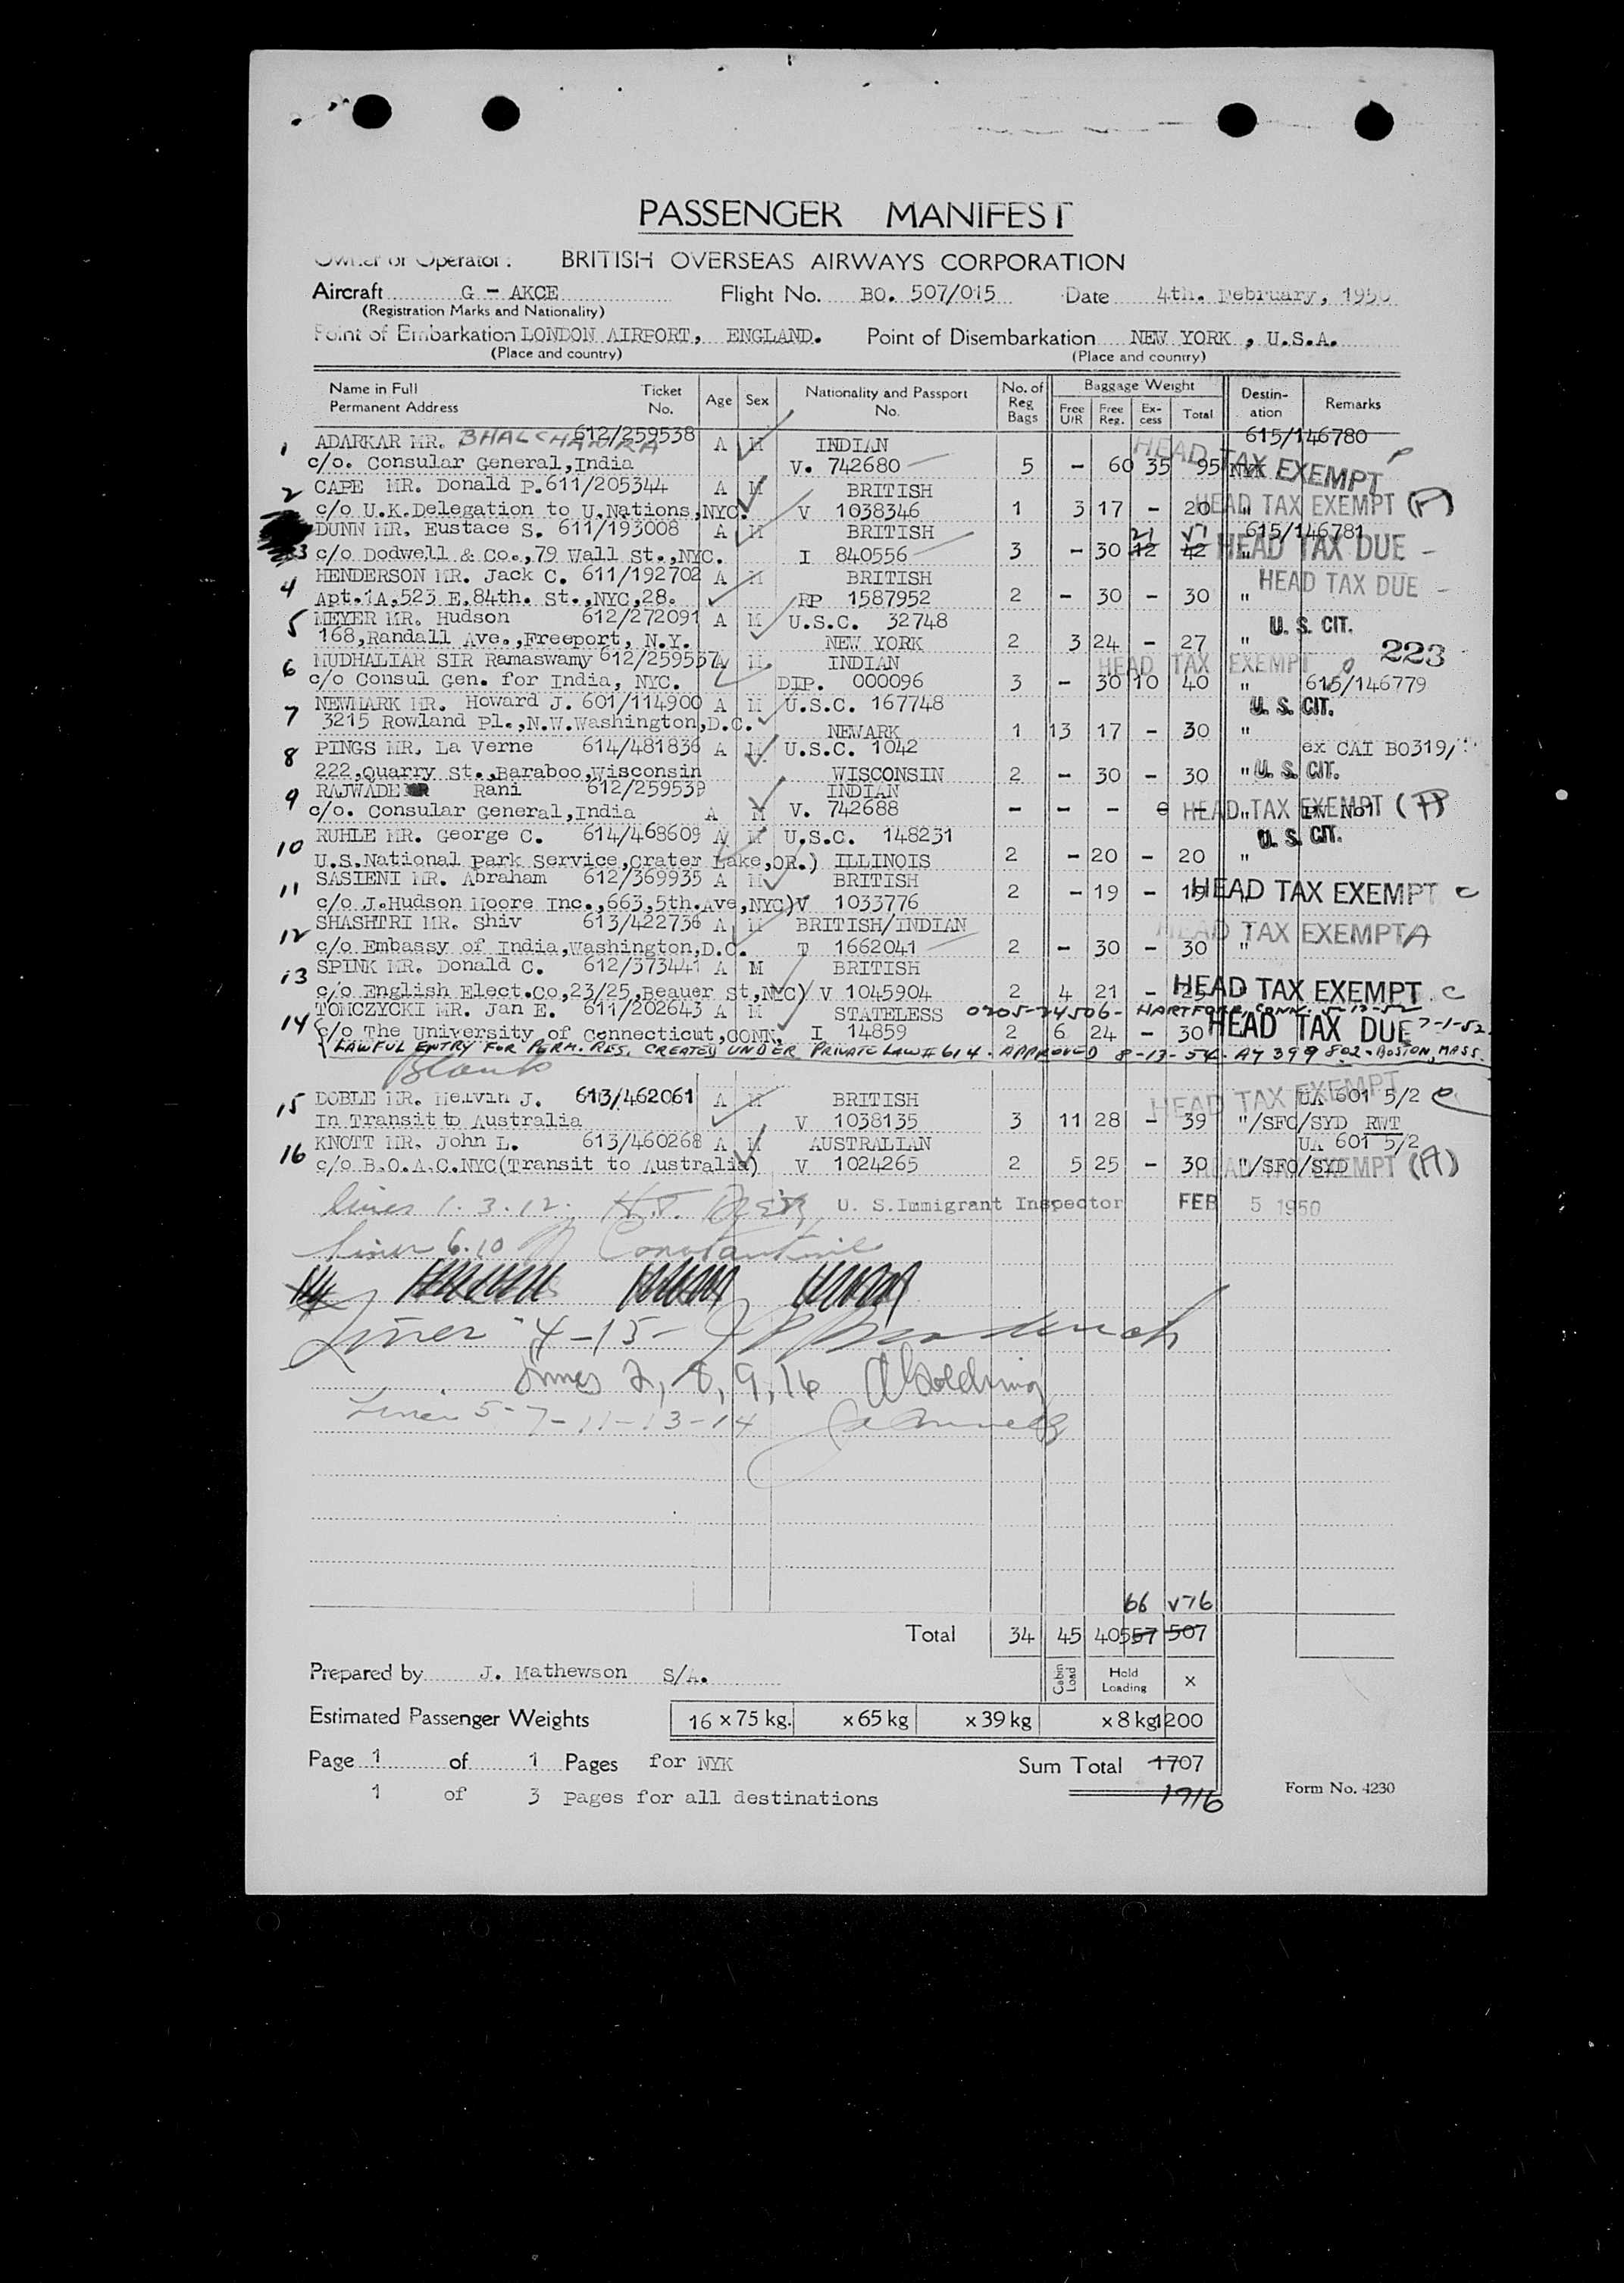 PASSENGER MANIFEST
Owner or Operator: BRITISH OVERSEAS AIRWAYS CORPORATION
Aircraft G - AKCE Flight No. BO. 507/015 Date 4th. February, 1950
(Registration Marks and Nationality)
Point of Embarkation LONDON AIRPORT, ENGLAND. Point of Disembarkation NEW YORK , U.S.A.
(Place and country) (Place and country)
Name in Full Permanent Address Ticket No. Age Sex Nationality and Passport No. No. of Reg Bags Baggage Weight Free U/R Free Reg. Ex-cess Total Destin-ation Remarks
1 ADARKAR MR. BHALCHANRA 612/259538 A M INDIAN 615/146780
c/o. Consular General,India V. 742680 5 - 60 35 95 NYK HEAD TAX EXEMPT P
2 CAPE MR. Donald P. 611/205344 A M BRITISH
c/o U.K.Delegation to U.Nations,NYC. V 1038346 1 3 17 - 20 " HEAD TAX EXEMPT (A)
3 DUNN MR. Eustace S. 611/193008 A M BRITISH 21 51 615/146781
c/o Dodwell & Co.,79 Wall St.,NYC. I 840556 3 - 30 12 42 " HEAD TAX DUE -
4 HENDERSON MR. Jack C. 611/192702 A M BRITISH HEAD TAX DUE -
Apt.1A,523 E.84th. St.,NYC,28. RP 1587952 2 - 30 - 30 "
5 MEYER MR. Hudson 612/272091 A M U.S.C. 32748 U. S. CIT.
168,Randall Ave.,Freeport, N.Y. NEW YORK 2 3 24 - 27 " 223
6 MUDHALIAR SIR Ramaswamy 612/259537 A M INDIAN HEAD TAX EXEMPT
c/o Consul Gen. for India, NYC. DIP. 000096 3 - 30 10 40 " 615/146779
7 NEWMARK MR. Howard J. 601/114900 A M U.S.C. 167748 U. S. CIT.
3215 Rowland Pl.,N.W.Washington,D.C. NEWARK 1 13 17 - 30 "
8 PINGS MR. La Verne 614/481836 A M U.S.C. 1042 ex CAI BO319/
222,Quarry St.,Baraboo,Wisconsin WISCONSIN 2 - 30 - 30 " U. S. CIT.
9 RAJWADE Rani 612/259539 INDIAN
c/o. Consular General,India A M V. 742688 - - - " HEAD TAX EXEMPT (A)
10 RUHLE MR. George C. 614/468609 A M U.S.C. 148231 U. S. CIT.
U.S.National park Service,Crater Lake,OR.) ILLINOIS 2 - 20 - 20 "
11 SASIENI MR. Abraham 612/369935 A M BRITISH
c/o J.Hudson Moore Inc.,663,5th.Ave,NYC) V 1033776 2 - 19 - 19 " HEAD TAX EXEMPT C
12 SHASHTRI MR. Shiv 613/422736 A M BRITISH/INDIAN
c/o Embassy of India,Washington,D.C. T 1662041 2 - 30 - 30 " HEAD TAX EXEMPT A
13 SPINK MR. Donald C. 612/373441 A M BRITISH
c/o English Elect.Co,23/25,Beauer St,NYC) V 1045904 2 4 21 - 25 " HEAD TAX EXEMPT C
14 TOMCZYCKI MR. Jan E. 611/202643 A M STATELESS 0205-24506- HARTFORD, CONN. 5-13-52
c/o The University of Connecticut,CONN. I 14859 2 6 24 - 30 HEAD TAX DUE 7-1-52
LAWFUL ENTRY FOR PERM. RES. CREATED UNDER PRIVATE LAW # 614. APPROVED 8-13-54. A7 399 802 - BOSTON, MASS.
Blank
15 DOBLE MR. Melvin J. 613/462061 A M BRITISH HEAD TAX EXEMPT UA 601 5/2 C
In Transit to Australia V 1038135 3 11 28 - 39 "/SFO/SYD RWT
16 KNOTT MR. John L. 613/460268 A M AUSTRALIAN UA 601 5/2
c/o B.O.A.C.NYC(Transit to Australia) V 1024265 2 5 25 - 30 "/SFO/SYD HEAD TAX EXEMPT (A)
Lines 1. 3. 12. U. S.Immigrant Inspector FEB 5 1950
Lines 6.10 Constantine
Lines 4-15-
Lines 2, 8, 9, 16
Lines 5-7-11-13-14
66 576
Total 34 45 405 57 507
Prepared by J. Mathewson S/A. Cabin Load Hold Loading x
Estimated Passenger Weights 16 x 75 kg. x 65 kg x 39 kg x 8 kg 1200
Page 1 of 1 Pages for NYK Sum Total 1707
1 of 3 pages for all destinations 1716
Form No. 4230